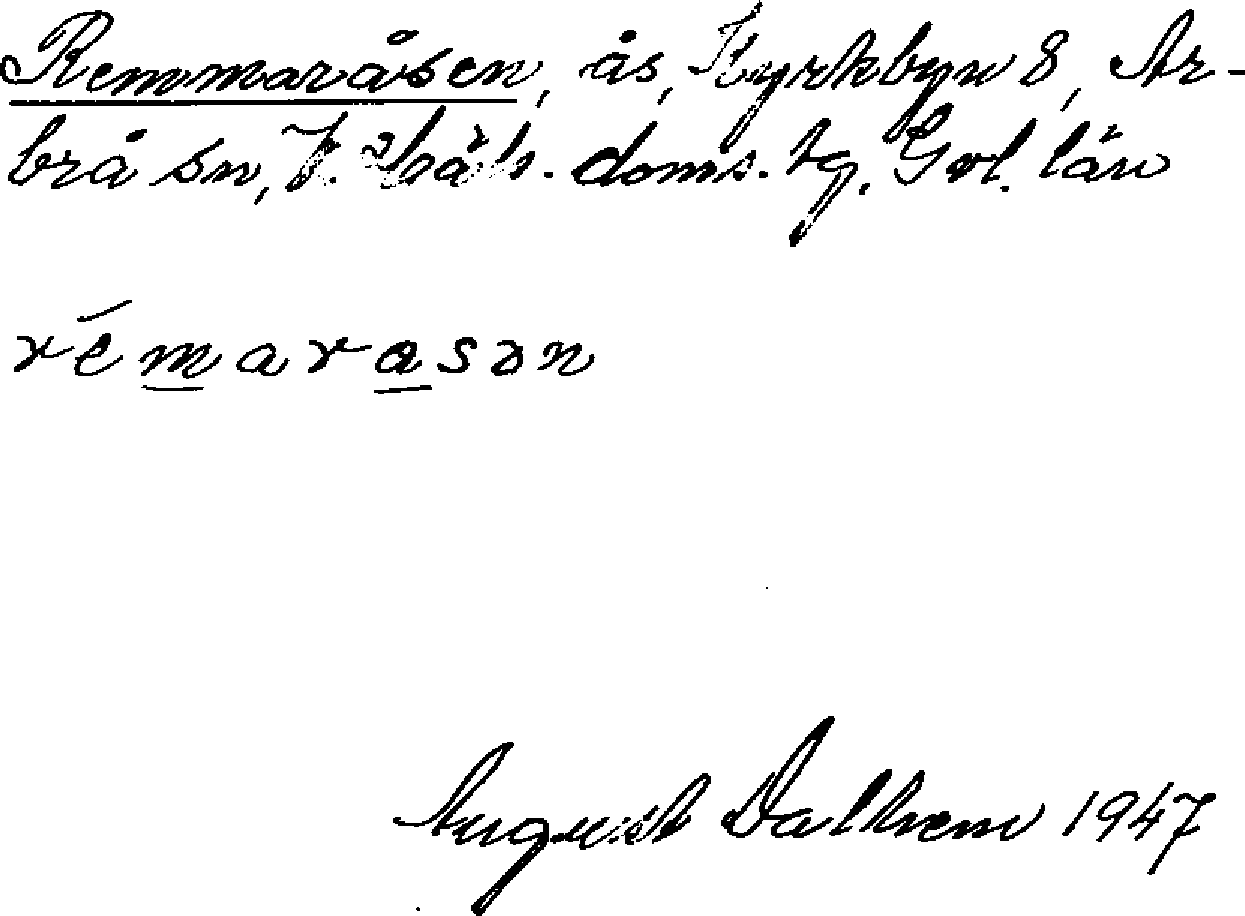 Remmaråsen, ås, Kyrkbyn 8, Ar-
brå sn, V. Häls. doms. tg. Gvl. län
rémarasən
August Dalhem 1947